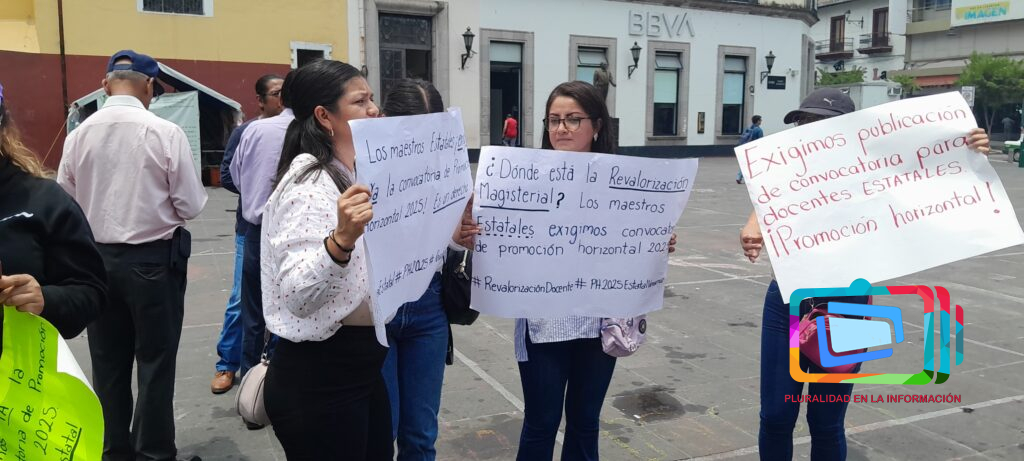 BBVA
IMAGEN
Los maestros Estatales
Ya la convocatoria
horizontal 2025! Es un derecho
Estatal # PH2025
¿Dónde está la Revalorización
Magisterial? Los maestros
Estatales exigimos
de promoción horizontal
# Revalorización Docente # PH2025 Estatal
Exigimos publicación
de convocatoria para
docentes ESTATALES.
¡Promoción horizontal!
la
de Promoción
2025
Estatal
PLURALIDAD EN LA INFORMACIÓN